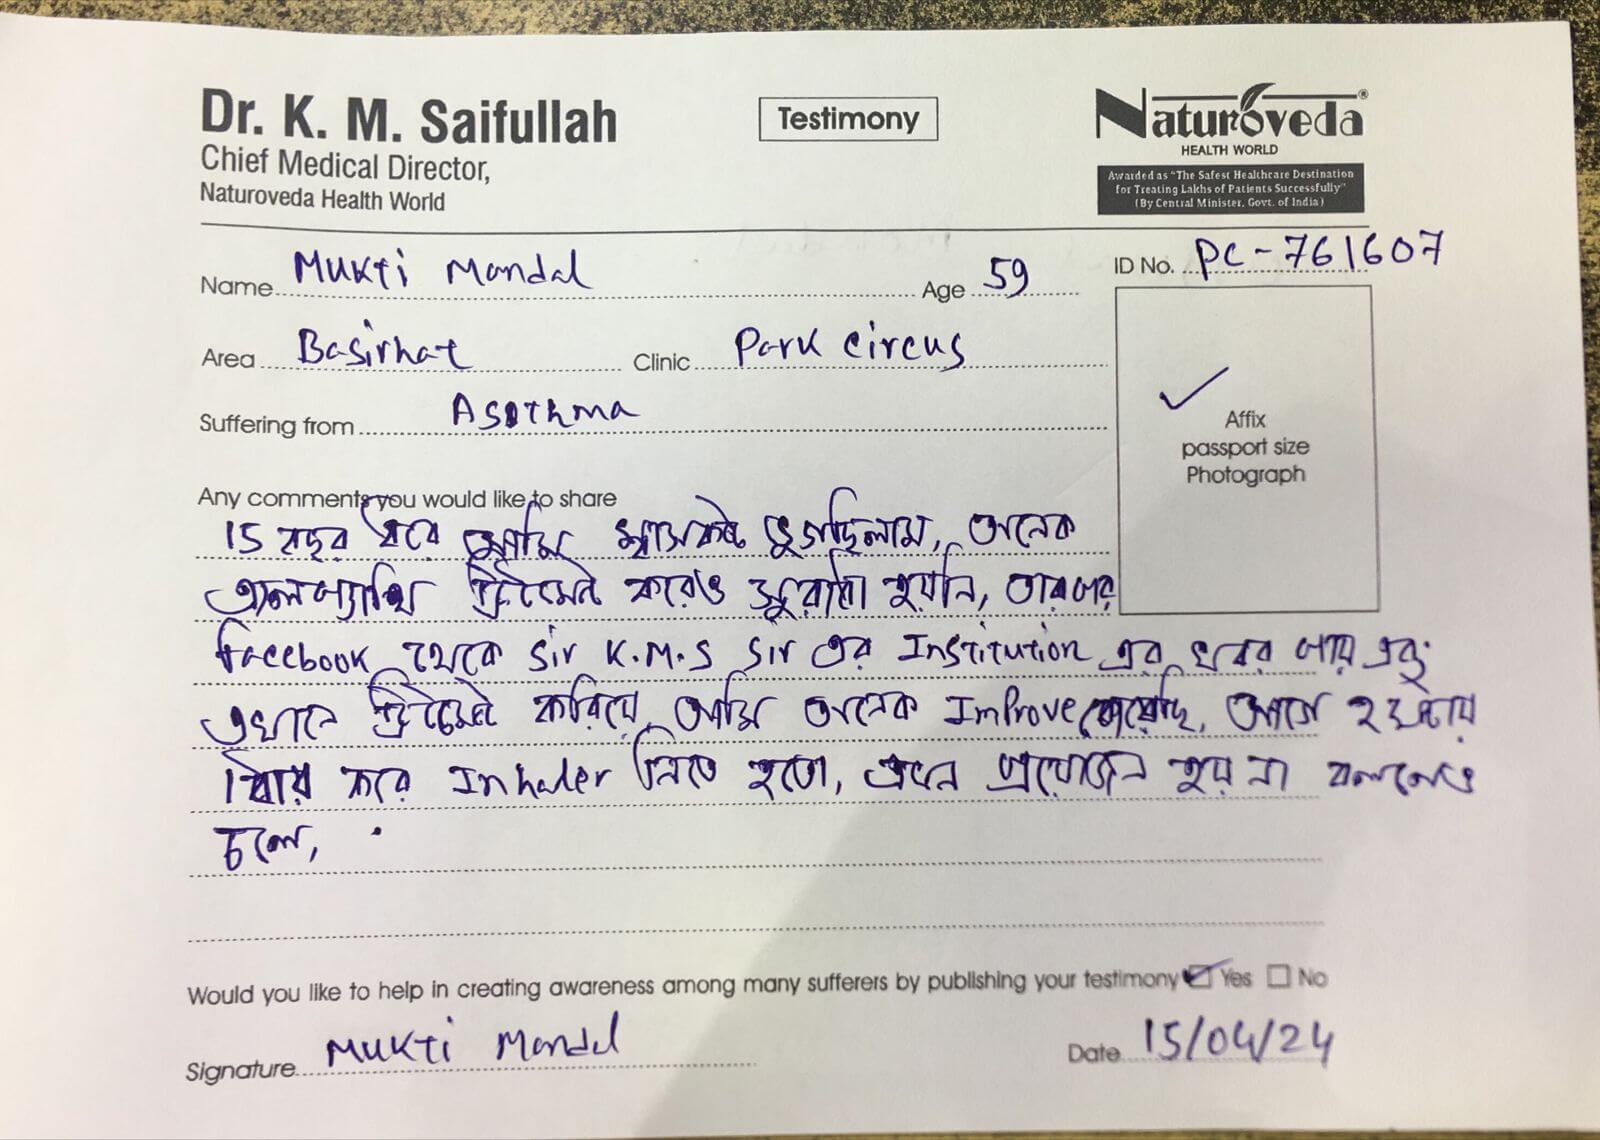 Dr. K. M. Saifullah
Chief Medical Director,
Naturoveda Health World
Testimony
Naturoveda®
HEALTH WORLD
Awarded as "The Safest Healthcare Destination
for Treating Lakhs of Patients Successfully"
(By Central Minister, Govt. of India)
Name Mukti Mandal Age 59 ID No. PC-761607
Area Basirhat Clinic Park Circus
Suffering from Asthma
Affix
passport size
Photograph
Any comments you would like to share
15 বছর ধরে আমি শ্বাসকষ্টে ভুগছিলাম, অনেক
এলোপ্যাথি ট্রিটমেন্ট করেও সুরাহা হয়নি, তারপর
Facebook থেকে Sir K.M.S Sir এর Institution এর খবর পায় এবং
এখানে ট্রিটমেন্ট করিয়ে আমি অনেক Improve করেছি, আগে হপ্তায়
করে Inhaler নিতে হতো, এখন প্রয়োজন হয় না বললেও
চলে,
Would you like to help in creating awareness among many sufferers by publishing your testimony Yes No
Signature Mukti Mandal Date 15/04/24